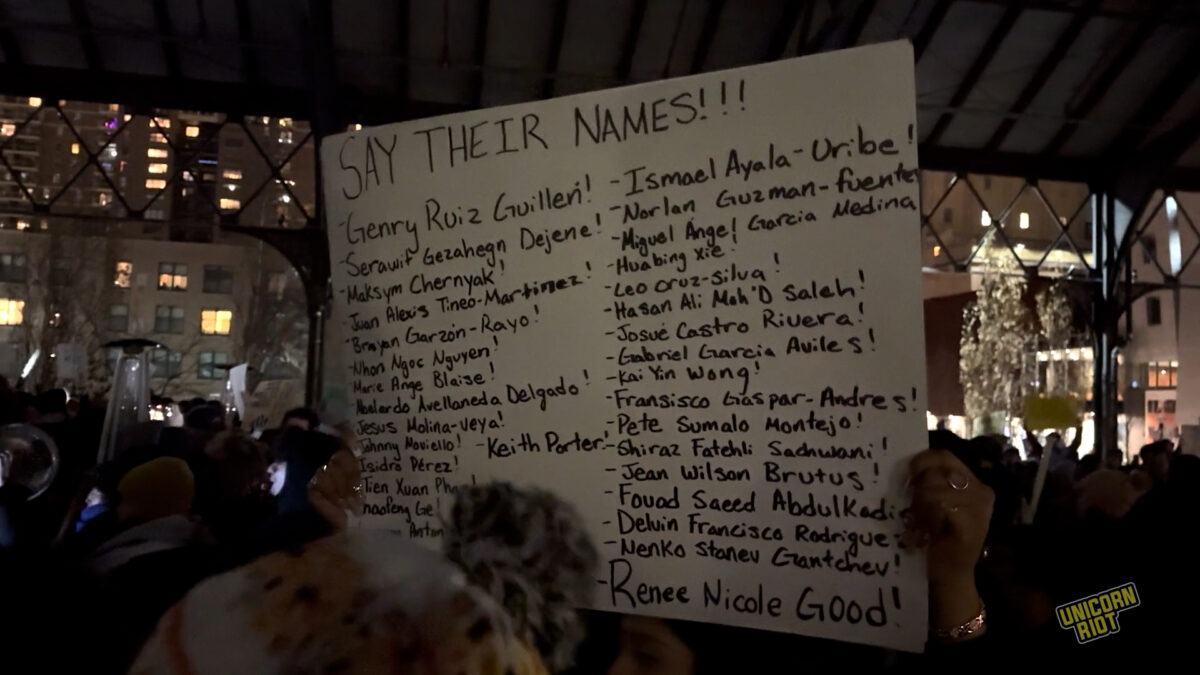 SAY THEIR NAMES!!!
-Genry Ruiz Guillen!
-Serawit Gezahegn Dejene!
-Maksym Chernyak!
-Juan Alexis Tineo-Martinez!
-Brayan Garzón-Rayo!
-Nhon Ngoc Nguyen!
Marie Ange Blaise!
Abelardo Avellaneda Delgado!
Jesus Molina-veya!
Johnny Noviello!
-Keith Porter!
Isidro Pérez!
Tien Xuan
Ge!
-Ismael Ayala-Uribe!
-Norlan Guzman-fuentes
-Miguel Ángel Garcia Medina
-Huabing Xie!
-Leo Cruz-Silva!
-Hasan Ali Moh'D Saleh!
-Josué Castro Rivera!
-Gabriel Garcia Aviles!
-Kai Yin Wong!
-Fransisco Gaspar-Andres!
-Pete Sumalo Montejo!
-Shiraz Fatehli Sachwani!
-Jean Wilson Brutus!
-Fouad Saeed Abdulkadi
-Delvin Francisco Rodrigue
-Nenko Stanev Gantchev!
-Renee Nicole GOOD!
UNICORN
RIOT